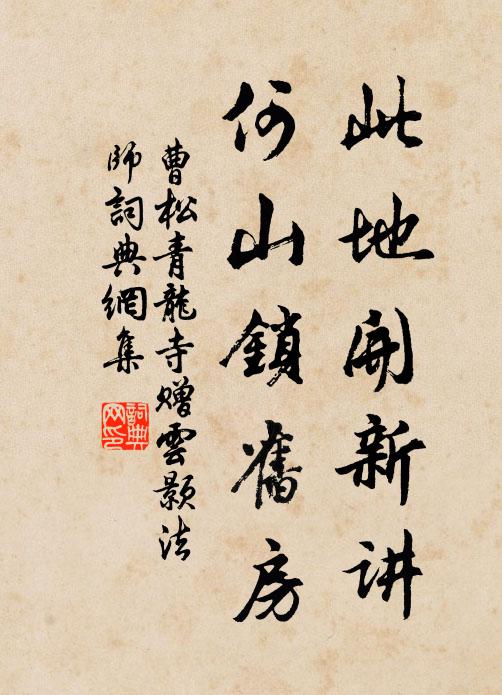 此地開新讲
何山鎖舊房
曹松青龍寺赠雲颢法
師詞典網集
詞典
网印